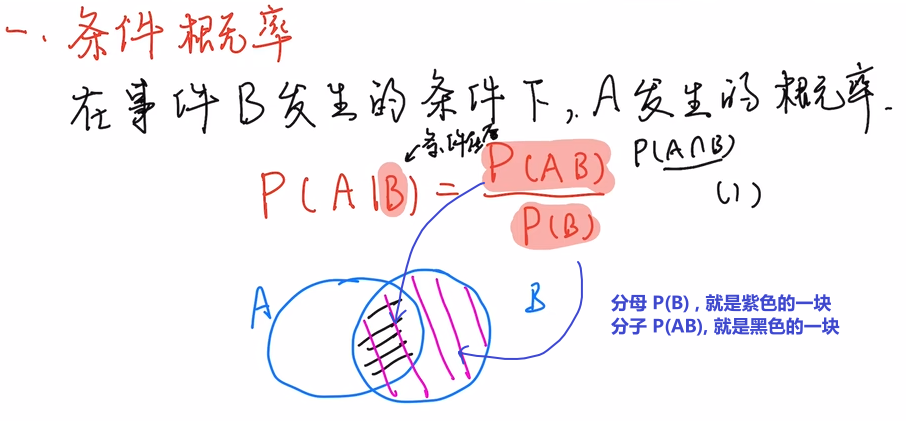 一. 条件概率
在事件B发生的条件下, A发生的概率.
条件在后
P(A|B) = P(AB) / P(B)
P(A∩B)
(1)
A
B
分母 P(B) , 就是紫色的一块
分子 P(AB), 就是黑色的一块